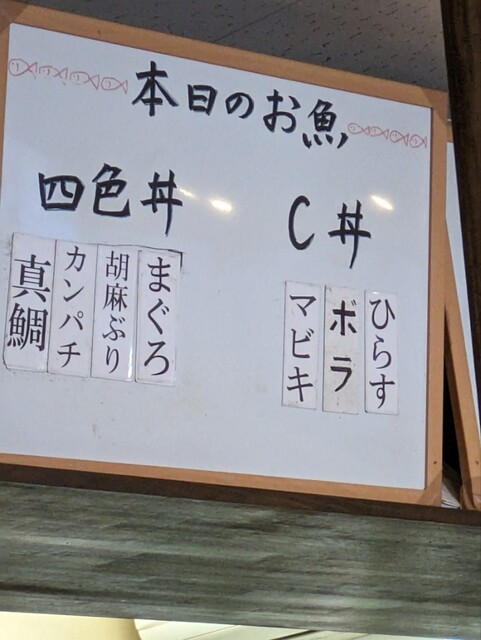 本日のお魚
四色丼
まぐろ
胡麻ぶり
カンパチ
真鯛
C丼
ひらす
ボラ
マビキ